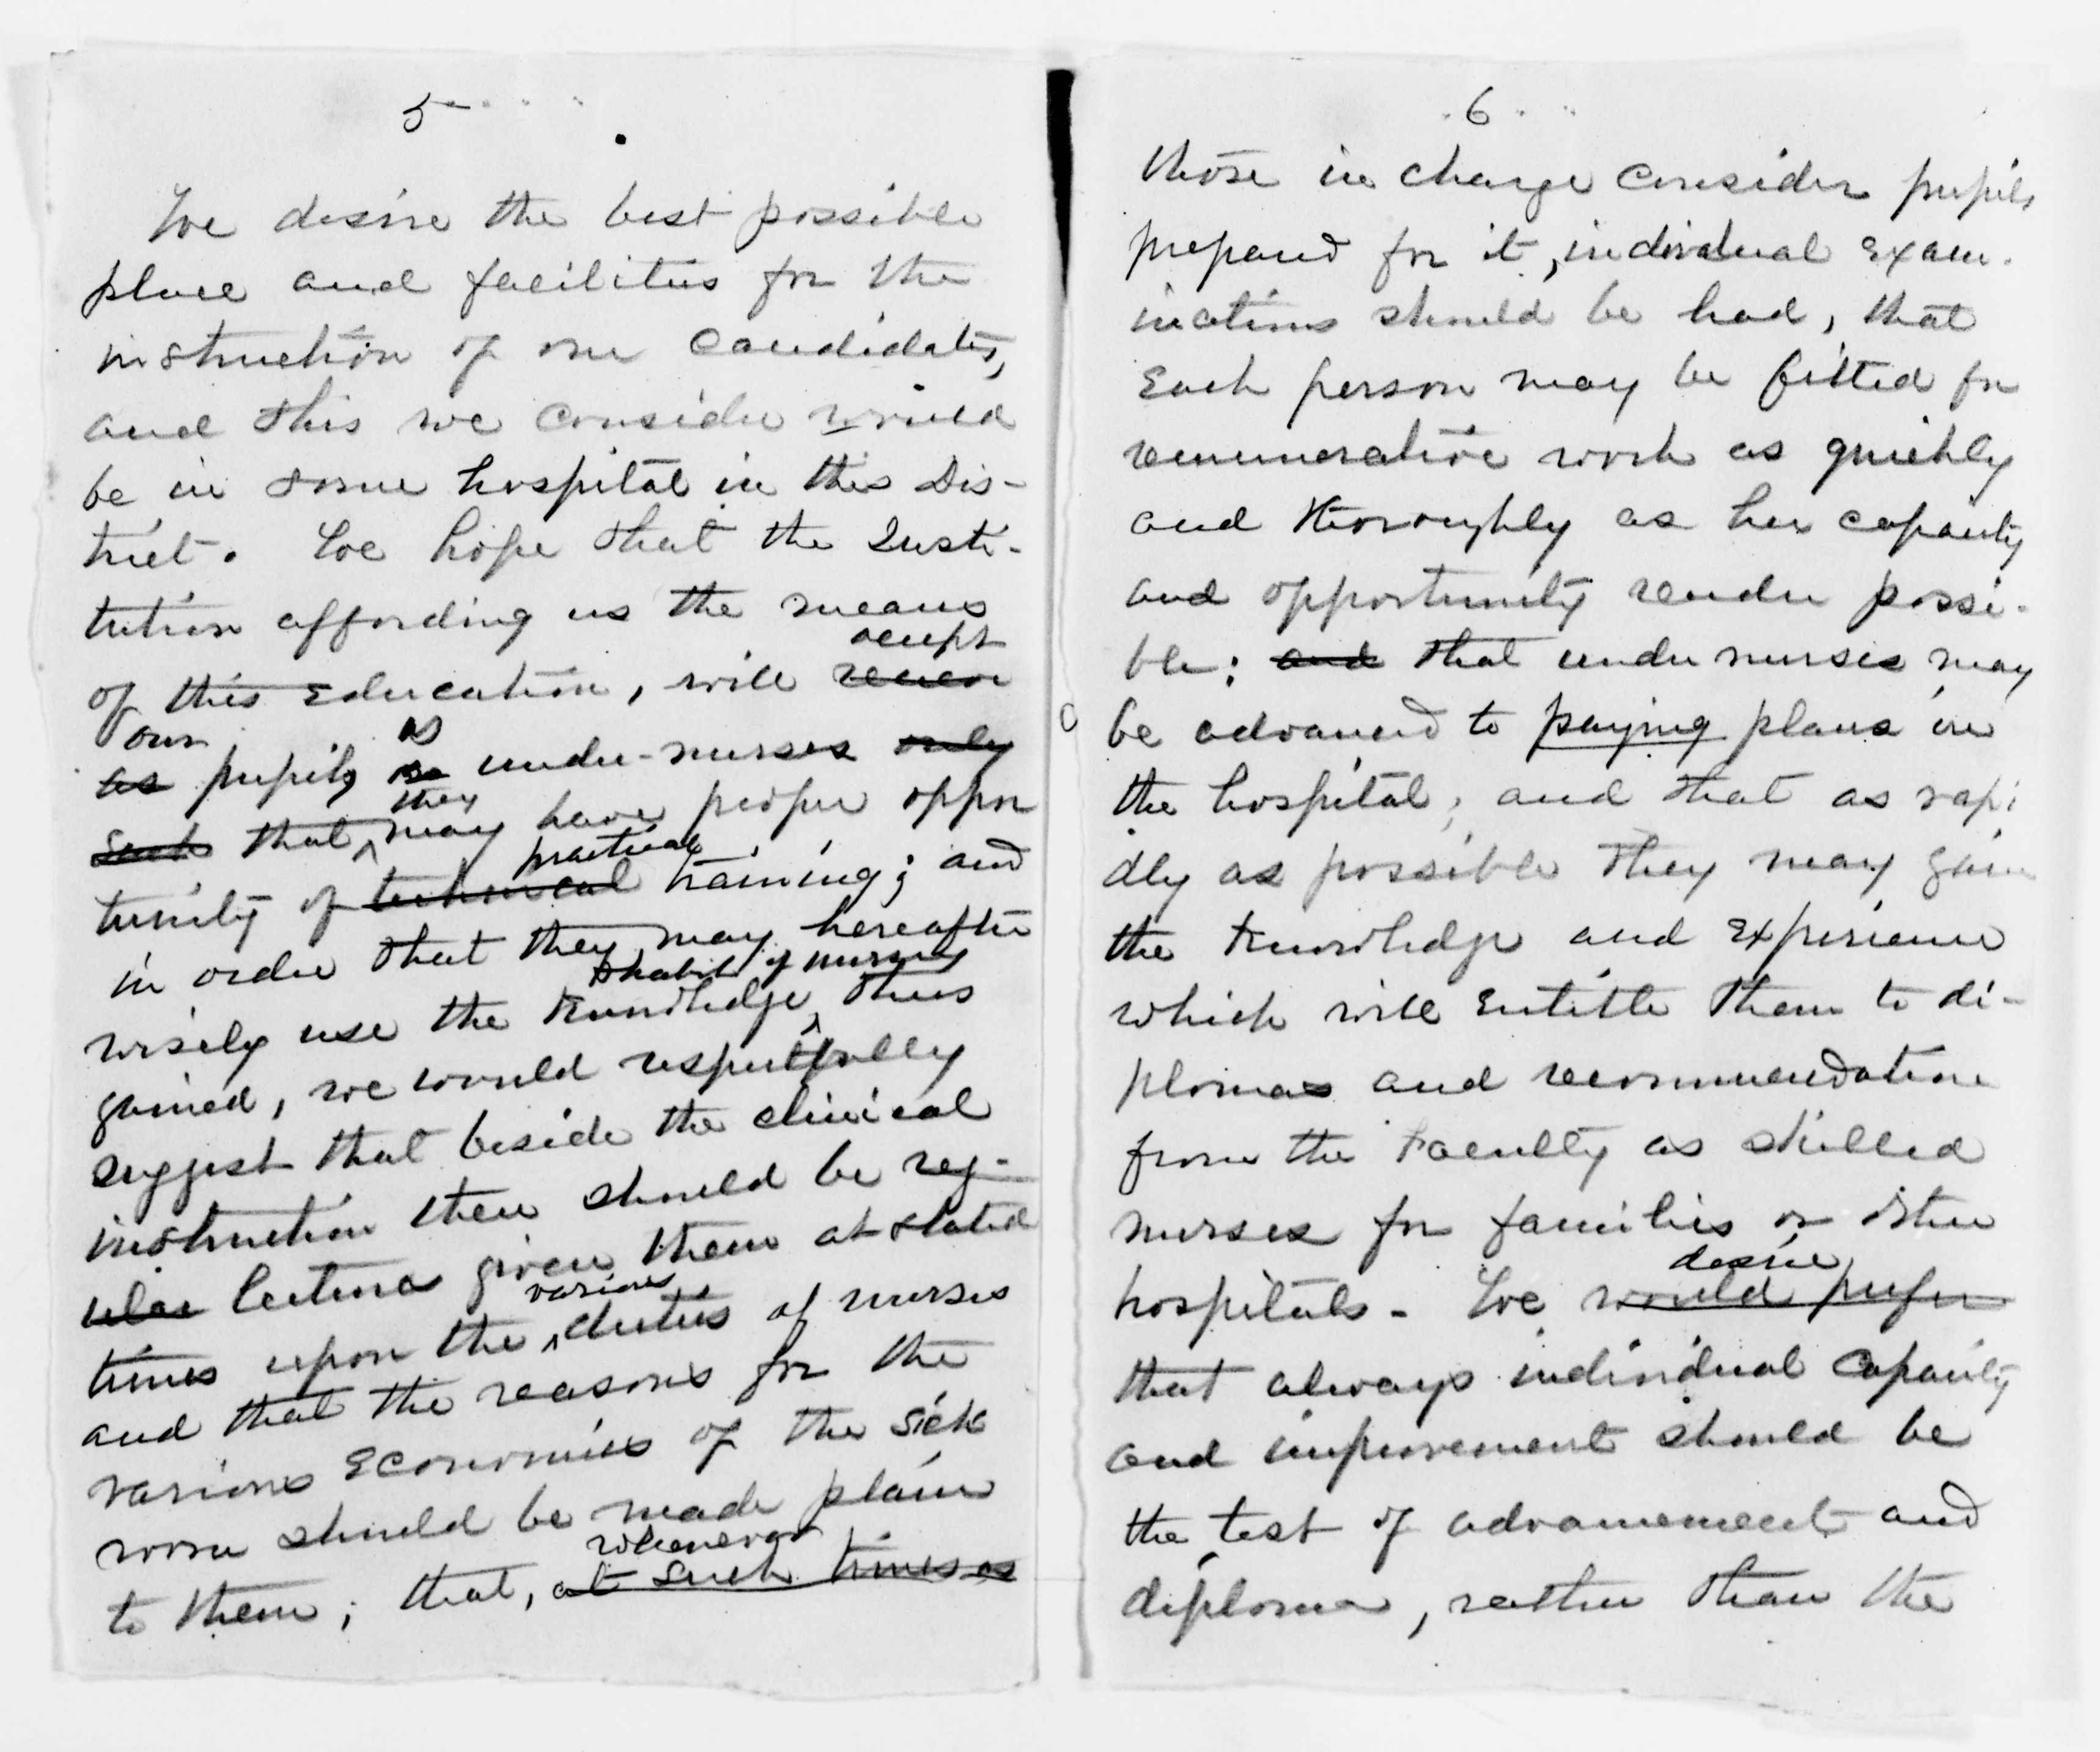 5
We desire the best possible
place and facilities for the
instruction of our candidates,
and this we consider would
be in some hospital in this Dis-
trict. We hope that the Insti-
tution affording us the means
accept
of this education, will receive
our as
as pupils, so under-nurses only
they
such that may have proper oppor
practical
tunity of technical training; and
in order that they may hereafter
& habit of nursing
wisely use the knowledge thus
gained, we would respectfully
suggest that beside the clinical
instruction there should be reg-
ular lectures given them at stated
various
times upon the duties of nurses
and that the reasons for the
various economies of the sick
room should be made plain
whenever
to them; that, at such times as
6
those in charge consider pupils
prepared for it, individual exam-
inations should be had, that
each person may be fitted for
remunerative work as quickly
and thoroughly as her capacity
and opportunity render possi-
ble; and that under nurses may
be advanced to paying places in
the hospital; and that as rapi
dly as possible they may gain
the knowledge and experience
which will entitle them to di-
plomas and recommendation
from the Faculty as skilled
nurses for families or other
desire
hospitals - We would prefer
that always individual capacity
and improvement should be
the test of advancement and
diploma, rather than the